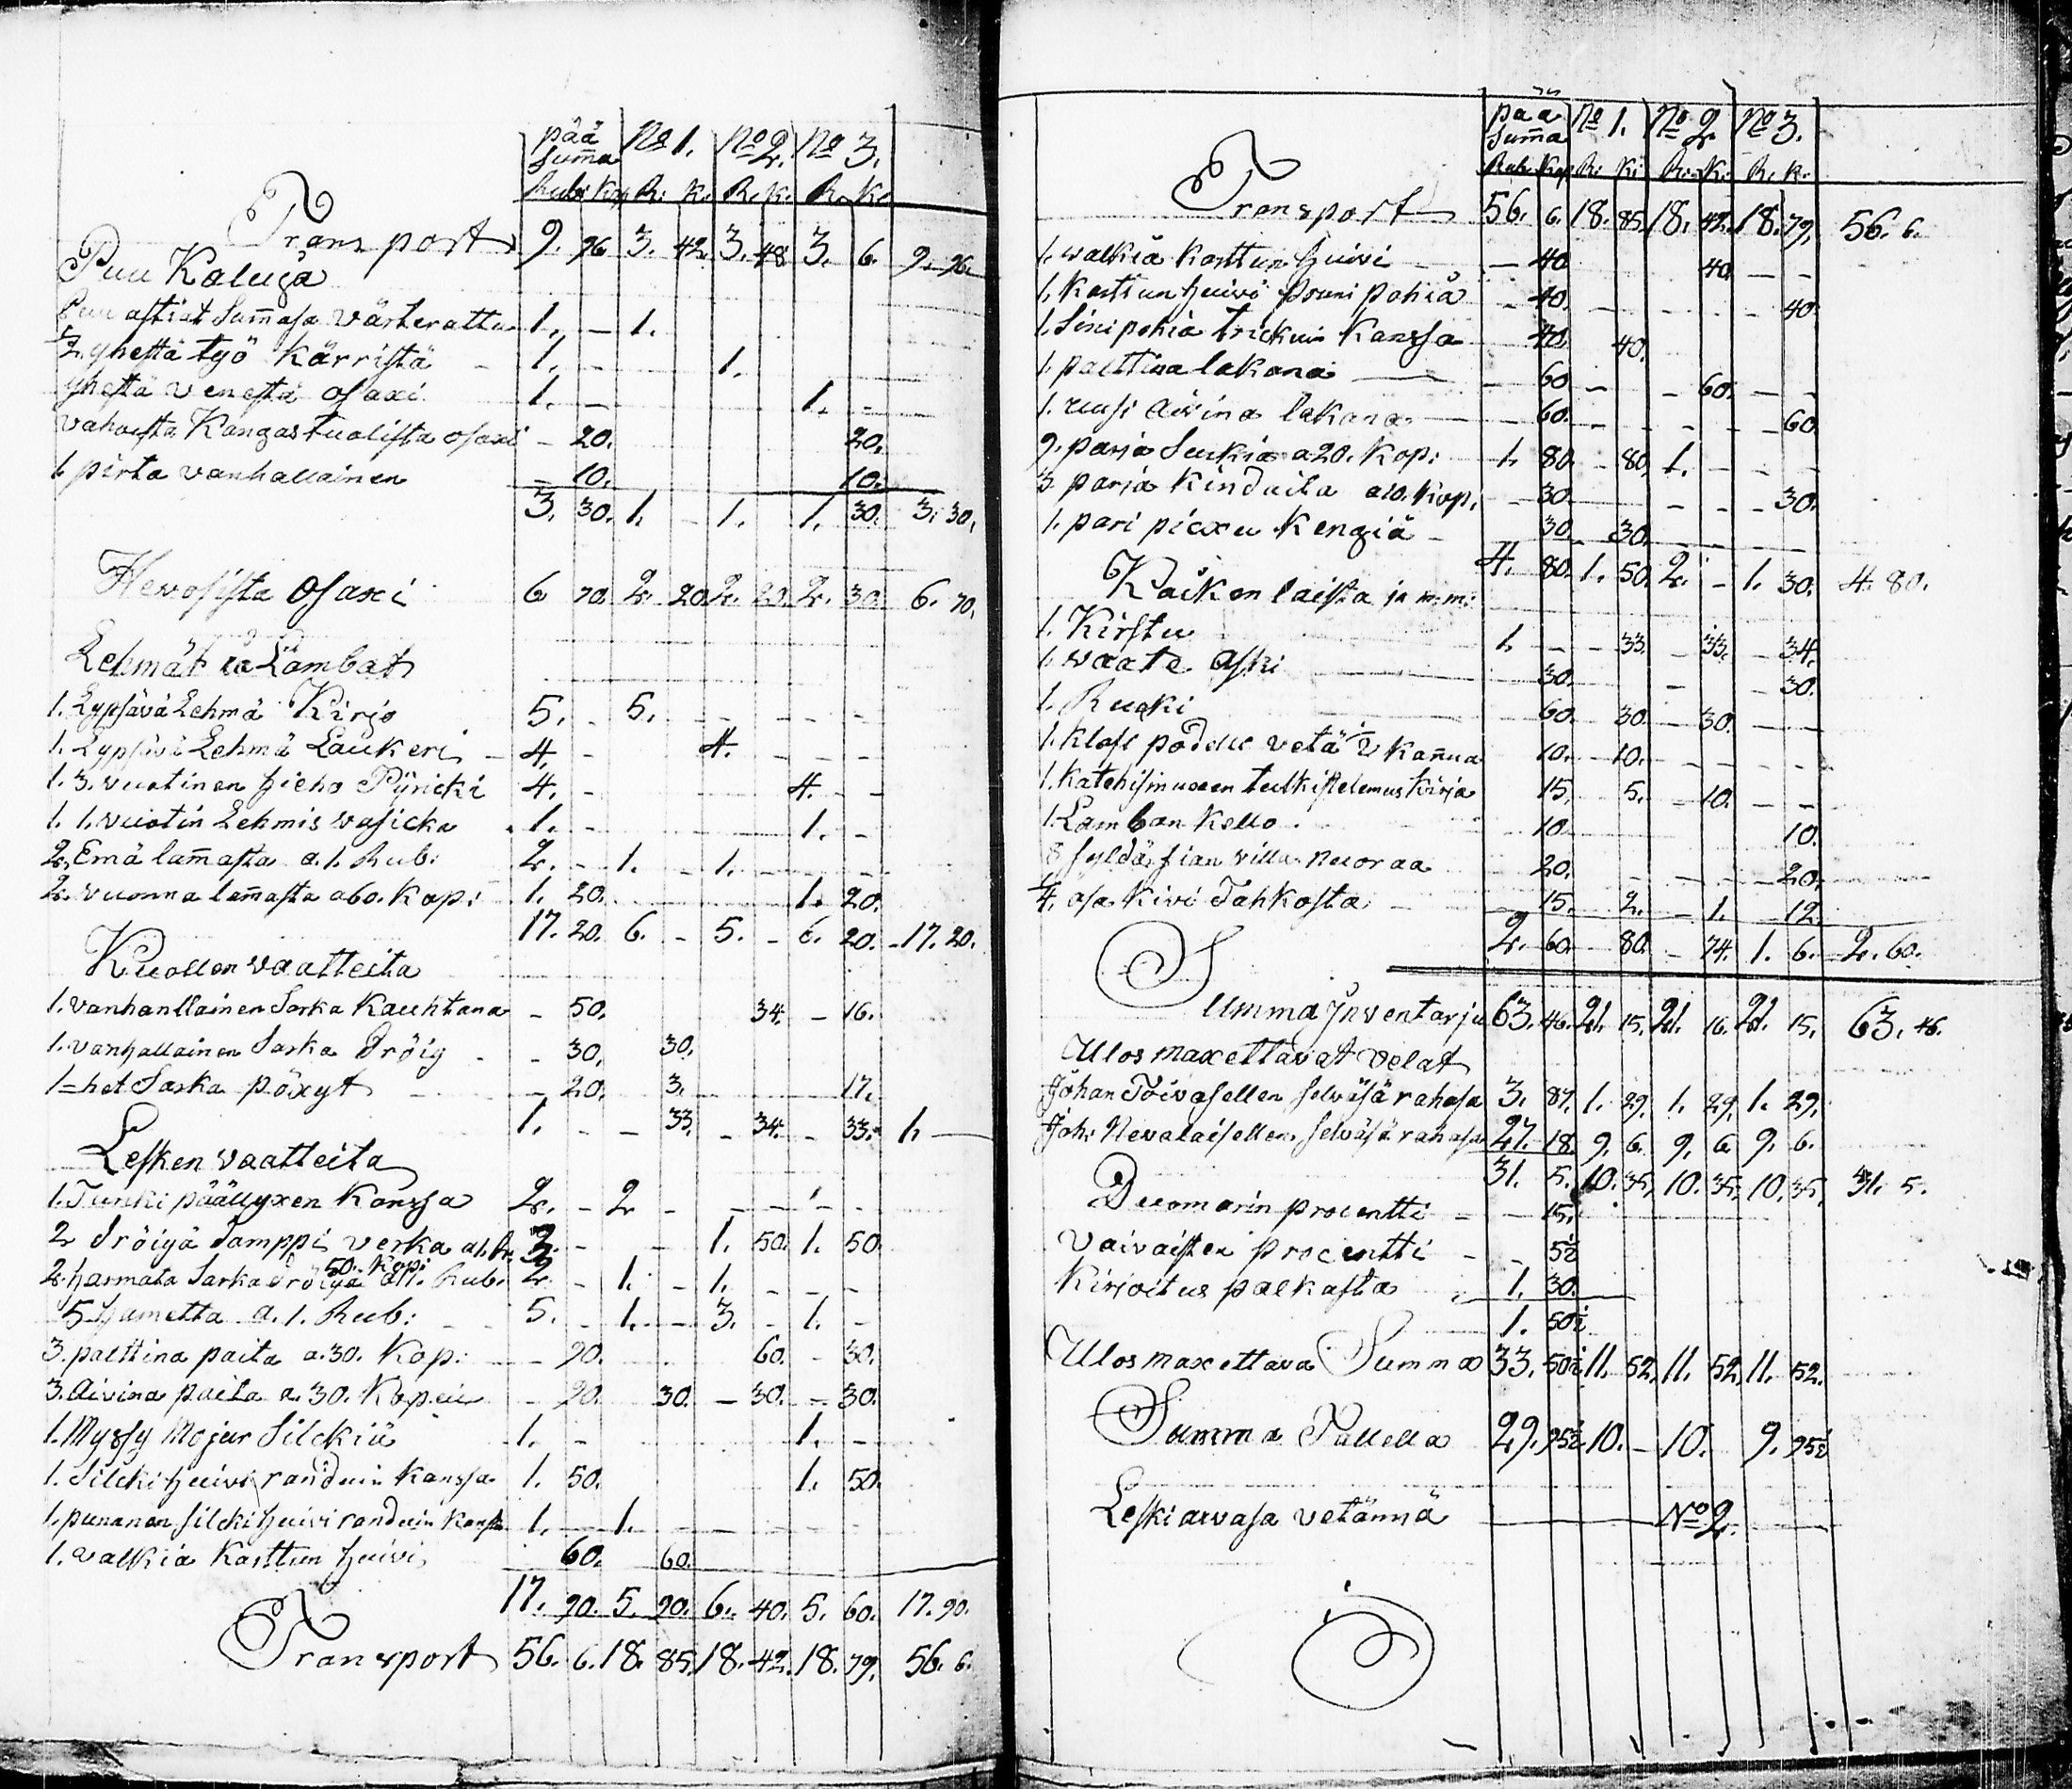 pää Suma No 1. No 2. No 3.
Rub: Kop R: K. R. K. R. K.
Transport 9. 96 3. 42. 3. 48 3. 6. 9. 96.
Puu Kaluja
Puu astiat Sumasa Värterattu 1. – 1.
1/2 yhestä työ Kärristä 1. – 1.
yhestä Venestä osaxi 1. – 1. –
vahoista Kangastuolista osaxi – 20. 20.
1. pirta vanhallainen – 10. 10.
3. 30. 1. – 1. 1. 30. 3. 30.
Hevosista osaxi 6 70. 2. 20. 2. 20. 2. 30. 6. 70.
Lehmät ja Lambat
1. Lypsävä Lehmä Kirjo 5. – 5. – – – –
1. Lypsävä Lehmä Laukeri – 4. – 4. – – –
1. 3. vuotinen hieho Pyricki 4. – 4. – –
1. 1. vuotin Lehmis wasicka 1. – 1. –
2. Emä lamasta a. 1. Rub: 2. – 1. – 1. –
2. vuonna lamasta a 60. Kop: 1. 20. 1. 20.
17. 20. 6. – 5. – 6. 20. – 17. 20.
Kuollen vaatteita
1. vanhanllainen Sarka Kauhtana – 50. 34. – 16.
1. vanhallainen Sarka dröig – – 30. 30.
1=het Sarka pöxyt – 20. 3. 17.
1. – – 33. – 34. – 33. 1. –
Lesken vaatteita
1. Turki päällyxen Kanssa 2. – 2 – – – – –
2 dröigä damppi verka a 1. R. 3. – – 1. 50. 1. 50
50. Kop:
2. harmata Sarka dröiyä a 1. Rub. 2. – 1. – 1. – – –
5 hametta a. 1. Rub: 5. – 1. – 3. – 1. –
3. palttina paita a. 30. Kop: – 90. 60. – 30.
3. Aivina paita a 30. Kopeik – 90. 30. – 30. – 30.
1. Myssy Mojur Silckiü 1. – 1. –
1. Silcki huivi randuin Kanssa 1. 50. 1. 50.
1. punanen silcki huivi randuin Kanssa 1. – 1. – – – –
1. Valkia Karttun huivi 60. 60.
17. 90. 5. 90. 6. 40. 5. 60. 17. 90.
Transport 56. 6. 18. 85. 18. 42. 18. 79. 56. 6.
pää Suma No 1. No 2 No 3.
Rub. Kop R: K: R. K. R. K.
Transport 56. 6. 18. 85. 18. 42. 18. 79. 56. 6.
1. walkia Karttun huivi – – 40 40. – –
1. Karttun huivi pruni pohia – 40. 40.
1. Sini pohia trickuin Kanssa 40. 40.
1. palttina lakana – 60 – – 60. – –
1. uusi Aivina lakana 60. – – – – 60.
9. paria Suckia a 20. Kop: 1. 80. – 80. 1. – – –
3 paria Kinduita a 10. Kop. – 30. – – – 30.
1. pari picxu Kengiä – 30. 30.
4. 80. 1. 50. 2. – 1. 30. 4. 80.
Kaikenlaista ja m: m:
1. Kirstu 1. – – 33. – 33. – 34.
1. Waate Aski 30. – – 30.
1. Rucki 60. 30. – 30. – –
1. Klasi podelle vetä 1/2 Kanua 10. 10. – – – –
1. Katehismuxen tutkistelemus Kirja 15. 5. – 10. – –
1. Lamban Kello. 10. 10.
8 syldä sian villa nuoraa 20. 20.
1/4 osa Kivi Tahkosta – 15. 2. – 1. 12.
2. 60. – 80. – 74. 1. 6. 2. 60.
Summa Jnventarju 63. 46. 21. 15. 21. 16. 21. 15. 63. 46.
Ulos maxettavat velat
Johan Toivasellen selväsä rahasa 3. 87. 1. 29. 1. 29. 1. 29.
Joh: Nevalaisellen, selväsä rahasa 27. 18. 9. 6. 9. 6. 9. 6.
31. 5. 10. 35. 10. 35. 10. 35. 31. 5.
Duomarin procentti – – 15.
Vaivaisten procentti – – 5 1/2
Kirjoitus palkasta 1. 30.
1. 50 1/2
Ulos maxettava Summa 33. 50 1/2 11. 52. 11. 52. 11. 52.
Summa Tallella 29. 95 1/2 10. – 10. 9. 95 1/2
Leski arvasa vetännä No 2.